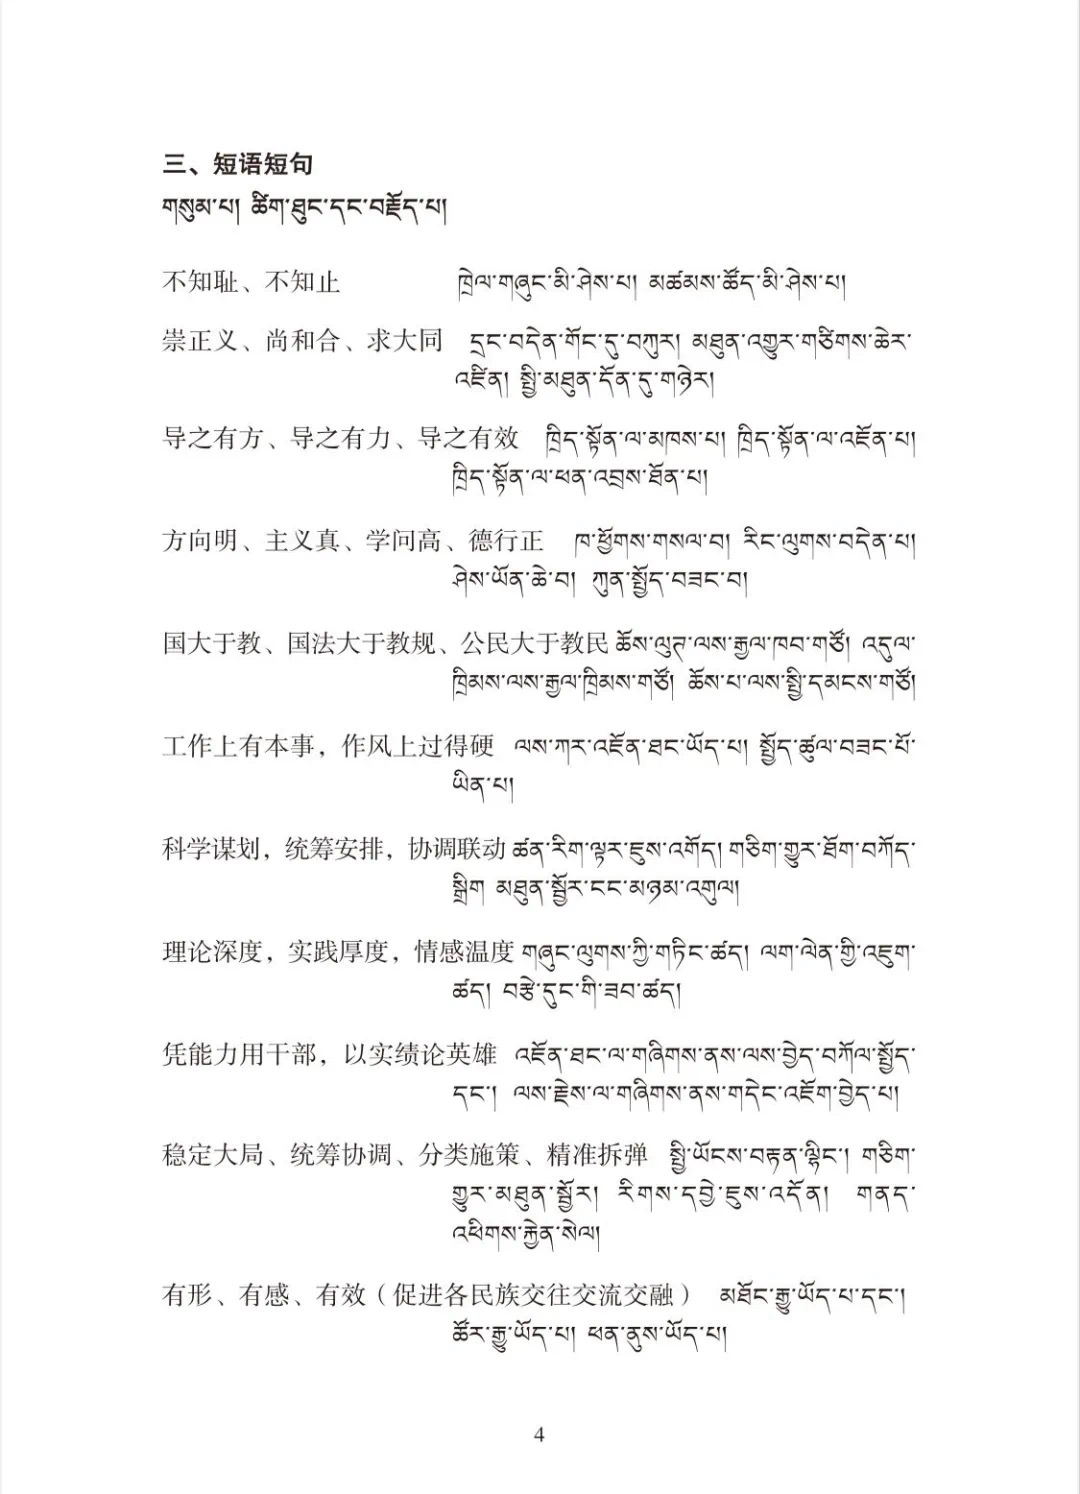 三、短语短句
གསུམ་པ། ཚིག་ཐུང་དང་བརྗོད་པ།
不知耻、不知止 ཁྲེལ་གཞུང་མི་ཤེས་པ། མཚམས་ཚོད་མི་ཤེས་པ།
崇正义、尚和合、求大同 དྲང་བདེན་གོང་དུ་བཀུར། མཐུན་འགྱུར་གཙིགས་ཆེར་
འཛིན། སྤྱི་མཐུན་དོན་དུ་གཉེར།
导之有方、导之有力、导之有效 ཁྲིད་སྟོན་ལ་མཁས་པ། ཁྲིད་སྟོན་ལ་འཇོན་པ།
ཁྲིད་སྟོན་ལ་ཕན་འབྲས་ཐོན་པ།
方向明、主义真、学问高、德行正 ཁ་ཕྱོགས་གསལ་བ། རིང་ལུགས་བདེན་པ།
ཤེས་ཡོན་ཆེ་བ། ཀུན་སྤྱོད་བཟང་བ།
国大于教、国法大于教规、公民大于教民 ཆོས་ལུཊ་ལས་རྒྱལ་ཁབ་གཙོ། འདུལ་
ཁྲིམས་ལས་རྒྱལ་ཁྲིམས་གཙོ། ཆོས་པ་ལས་སྤྱི་དམངས་གཙོ།
工作上有本事，作风上过得硬 ལས་ཀར་འཇོན་ཐང་ཡོད་པ། སྤྱོད་ཚུལ་བཟང་པོ་
ཡིན་པ།
科学谋划，统筹安排，协调联动 ཚན་རིག་ལྟར་ཇུས་འགོད། གཅིག་གྱུར་ཐོག་བཀོད་
སྒྲིག མཐུན་སྦྱོར་ངང་མཉམ་འགུལ།
理论深度，实践厚度，情感温度 གཞུང་ལུགས་ཀྱི་གཏིང་ཚད། ལག་ལེན་གྱི་འཇུག་
ཚད། བརྩེ་དུང་གི་ཟབ་ཚད།
凭能力用干部，以实绩论英雄 འཇོན་ཐང་ལ་གཞིགས་ནས་ལས་བྱེད་བཀོལ་སྤྱོད་
དང་། ལས་རྗེས་ལ་གཞིགས་ནས་གདེང་འཇོག་བྱེད་པ།
稳定大局、统筹协调、分类施策、精准拆弹 སྤྱི་ཡོངས་བརྟན་ལྷིང་། གཅིག་
གྱུར་མཐུན་སྦྱོར། རིགས་དབྱེ་ཇུས་འདོན། གནད་
འཕིགས་རྐྱེན་སེལ།
有形、有感、有效（促进各民族交往交流交融） མཐོང་རྒྱུ་ཡོད་པ་དང་།
ཚོར་རྒྱུ་ཡོད་པ། ཕན་ནུས་ཡོད་པ།
4